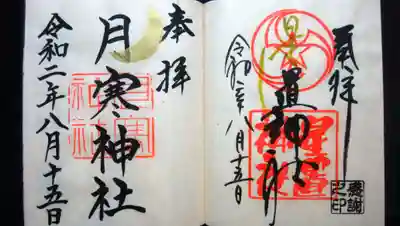 奉拝
月寒神社
令和二年八月十五日
奉拝
星置神社
令和二年八月十五日
参詣
之印